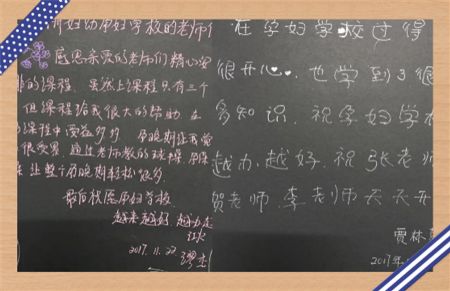 妇幼孕妇学校的老师们
感恩亲爱的老师们精心安
的课程，虽然上课程只有三个
但课程给我很大的帮助，在
课程中受益多多，孕晚期
很受累，通过老师教的
让整个孕晚期轻松很多。
最后祝愿孕妇学校
越来越好，越办越
红火
2017.11.22
在孕妇学校过得
很开心，也学到了很
多知识，祝孕妇学校
越办越好，祝张老师
贺老师、李老师天天开
贾林
2017年